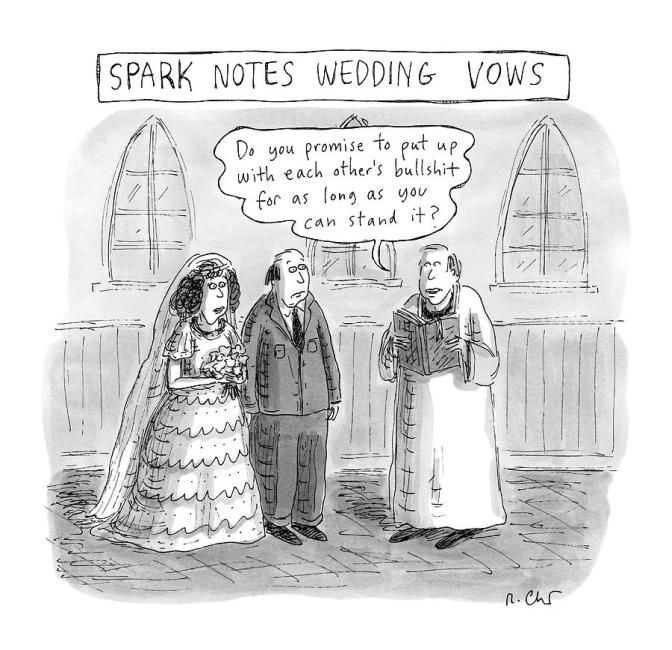 SPARK NOTES WEDDING VOWS
Do you promise to put up
with each other's bullshit
for as long as you
can stand it?
R. Chr